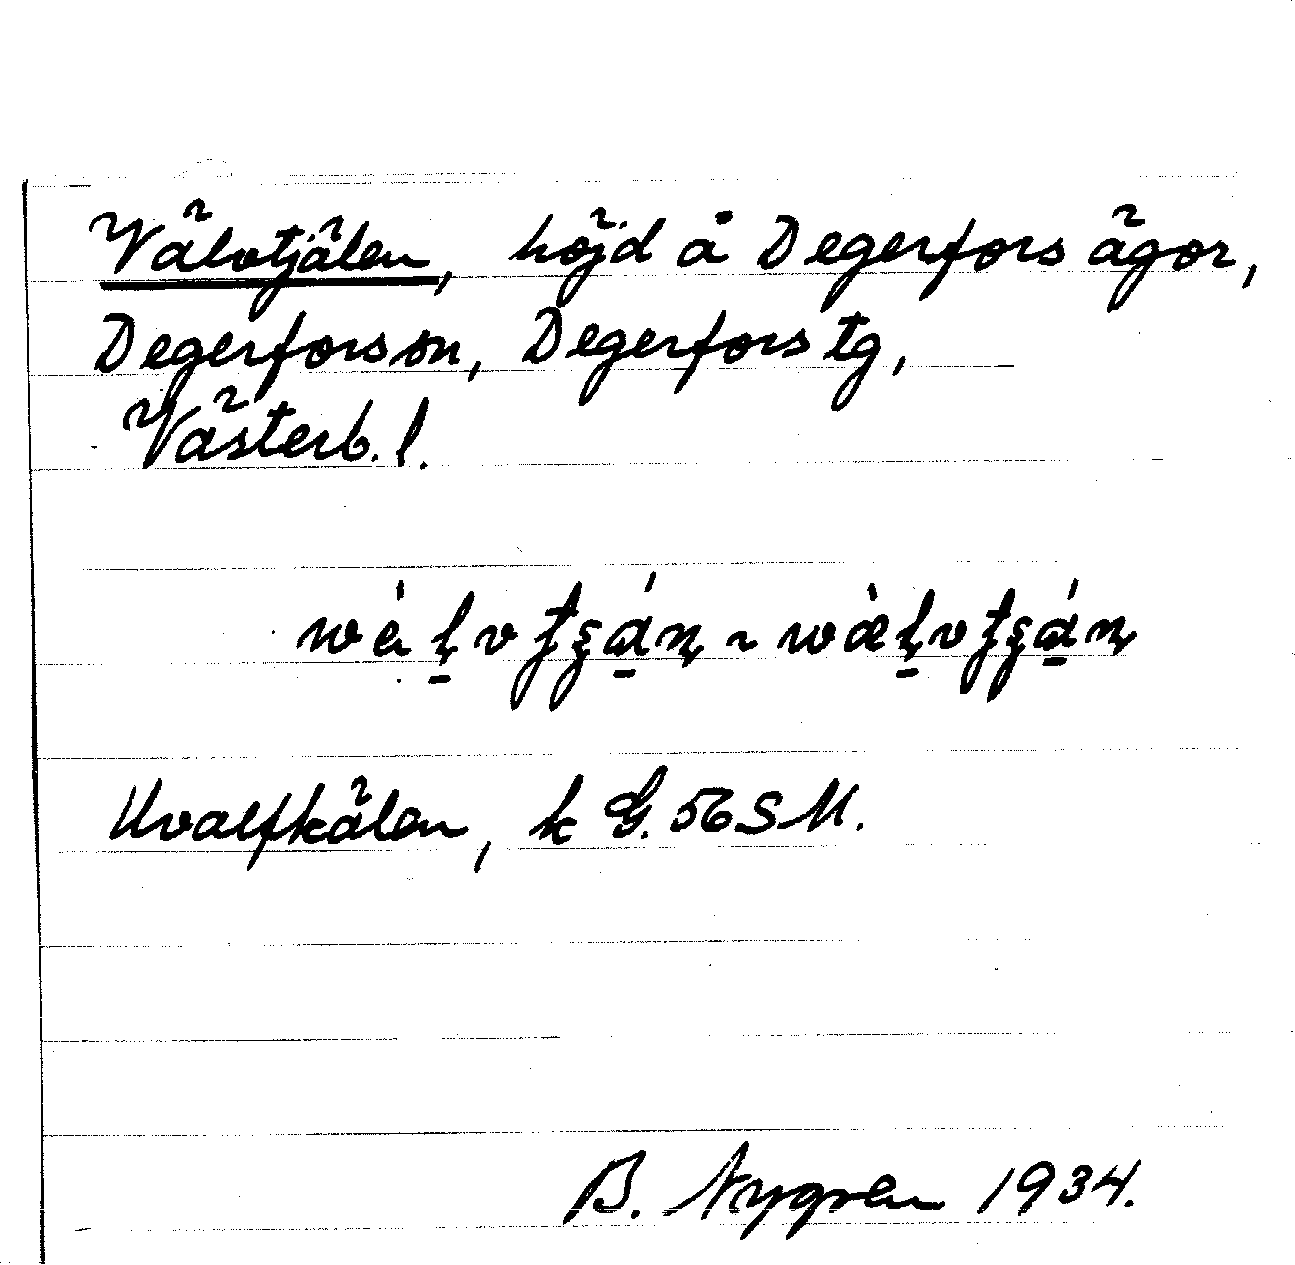 Välvtjälen, höjd å Degerfors ägor,
Degerfors sn, Degerfors tg,
Västerb. l.
Hvalfkälen, k G. 56 S M.
B. Nygren 1934.